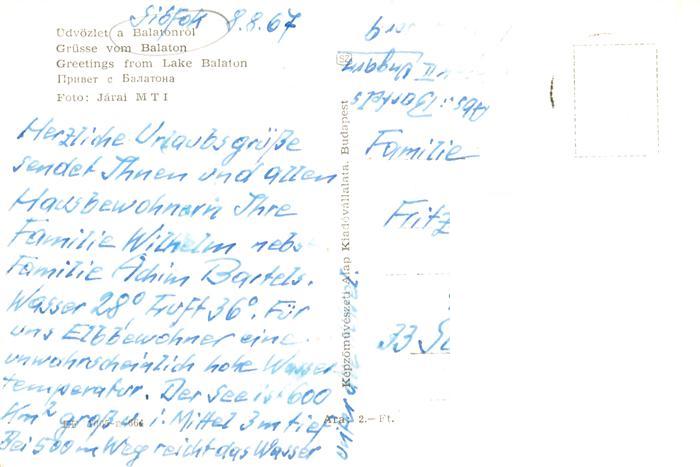 Siófok 8.8.67
Üdvözlet a Balatonról
Grüsse vom Balaton
Greetings from Lake Balaton
Привет с Балатона
Foto: Járai MTI
Herzliche Urlaubsgrüße
sendet Ihnen und allen
Hausbewohnern Ihre
Familie Wilhelm nebst
Familie Achim Bartels.
Wasser 28° Luft 36°. Für
uns Elbbewohner eine
unwahrscheinlich hohe Wasser
temperatur. Der See ist 600
Km² groß u. i. Mittel 3 m tief
Bei 500 m Weg reicht das Wasser
unter die
Képzőművészeti Alap Kiadóvállalata, Budapest
Ára: 2.— Ft.
Abs.: Bartels
Ungarn
Familie
Fritz
33